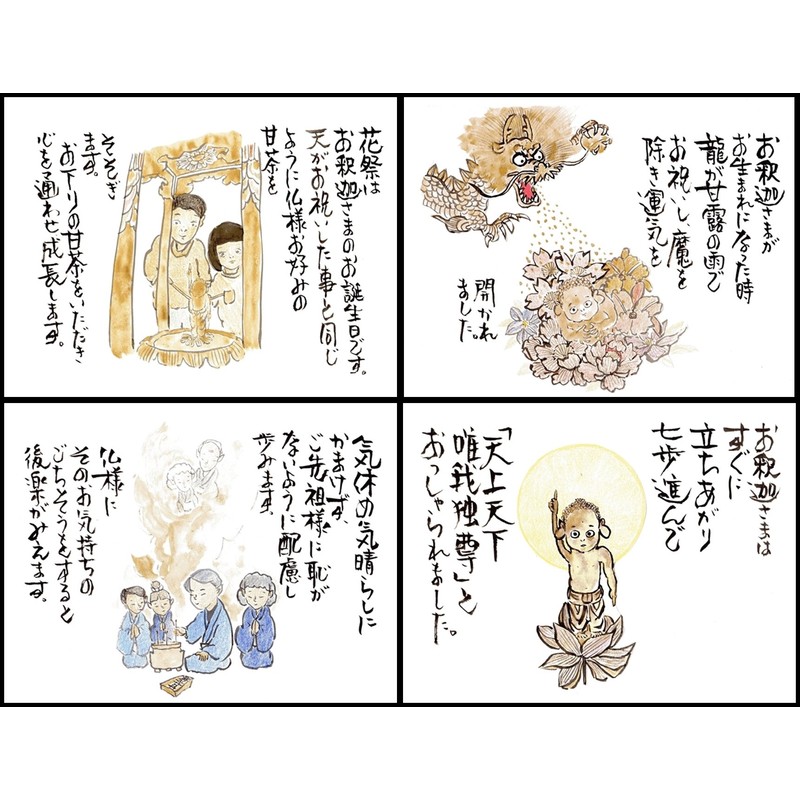 お釈迦さまが
お生まれになった時
龍が甘露の雨で
お祝いし、魔を
除き運気を
開かれ
ました。
花祭は
お釈迦さまのお誕生日です。
天がお祝いした事と同じ
ように仏様お好みの
甘茶を
そそぎ
ます。
お下りの甘茶をいただき
心を通わせ成長します。
お釈迦さまは
すぐに
立ちあがり
七歩進んで
「天上天下
唯我独尊」と
おっしゃられました。
気休め気晴らしに
かまけず、
ご先祖様に恥が
ないように配慮し
歩みます。
仏様に
そのお気持ちの
ごちそうをすると
後楽がみえます。